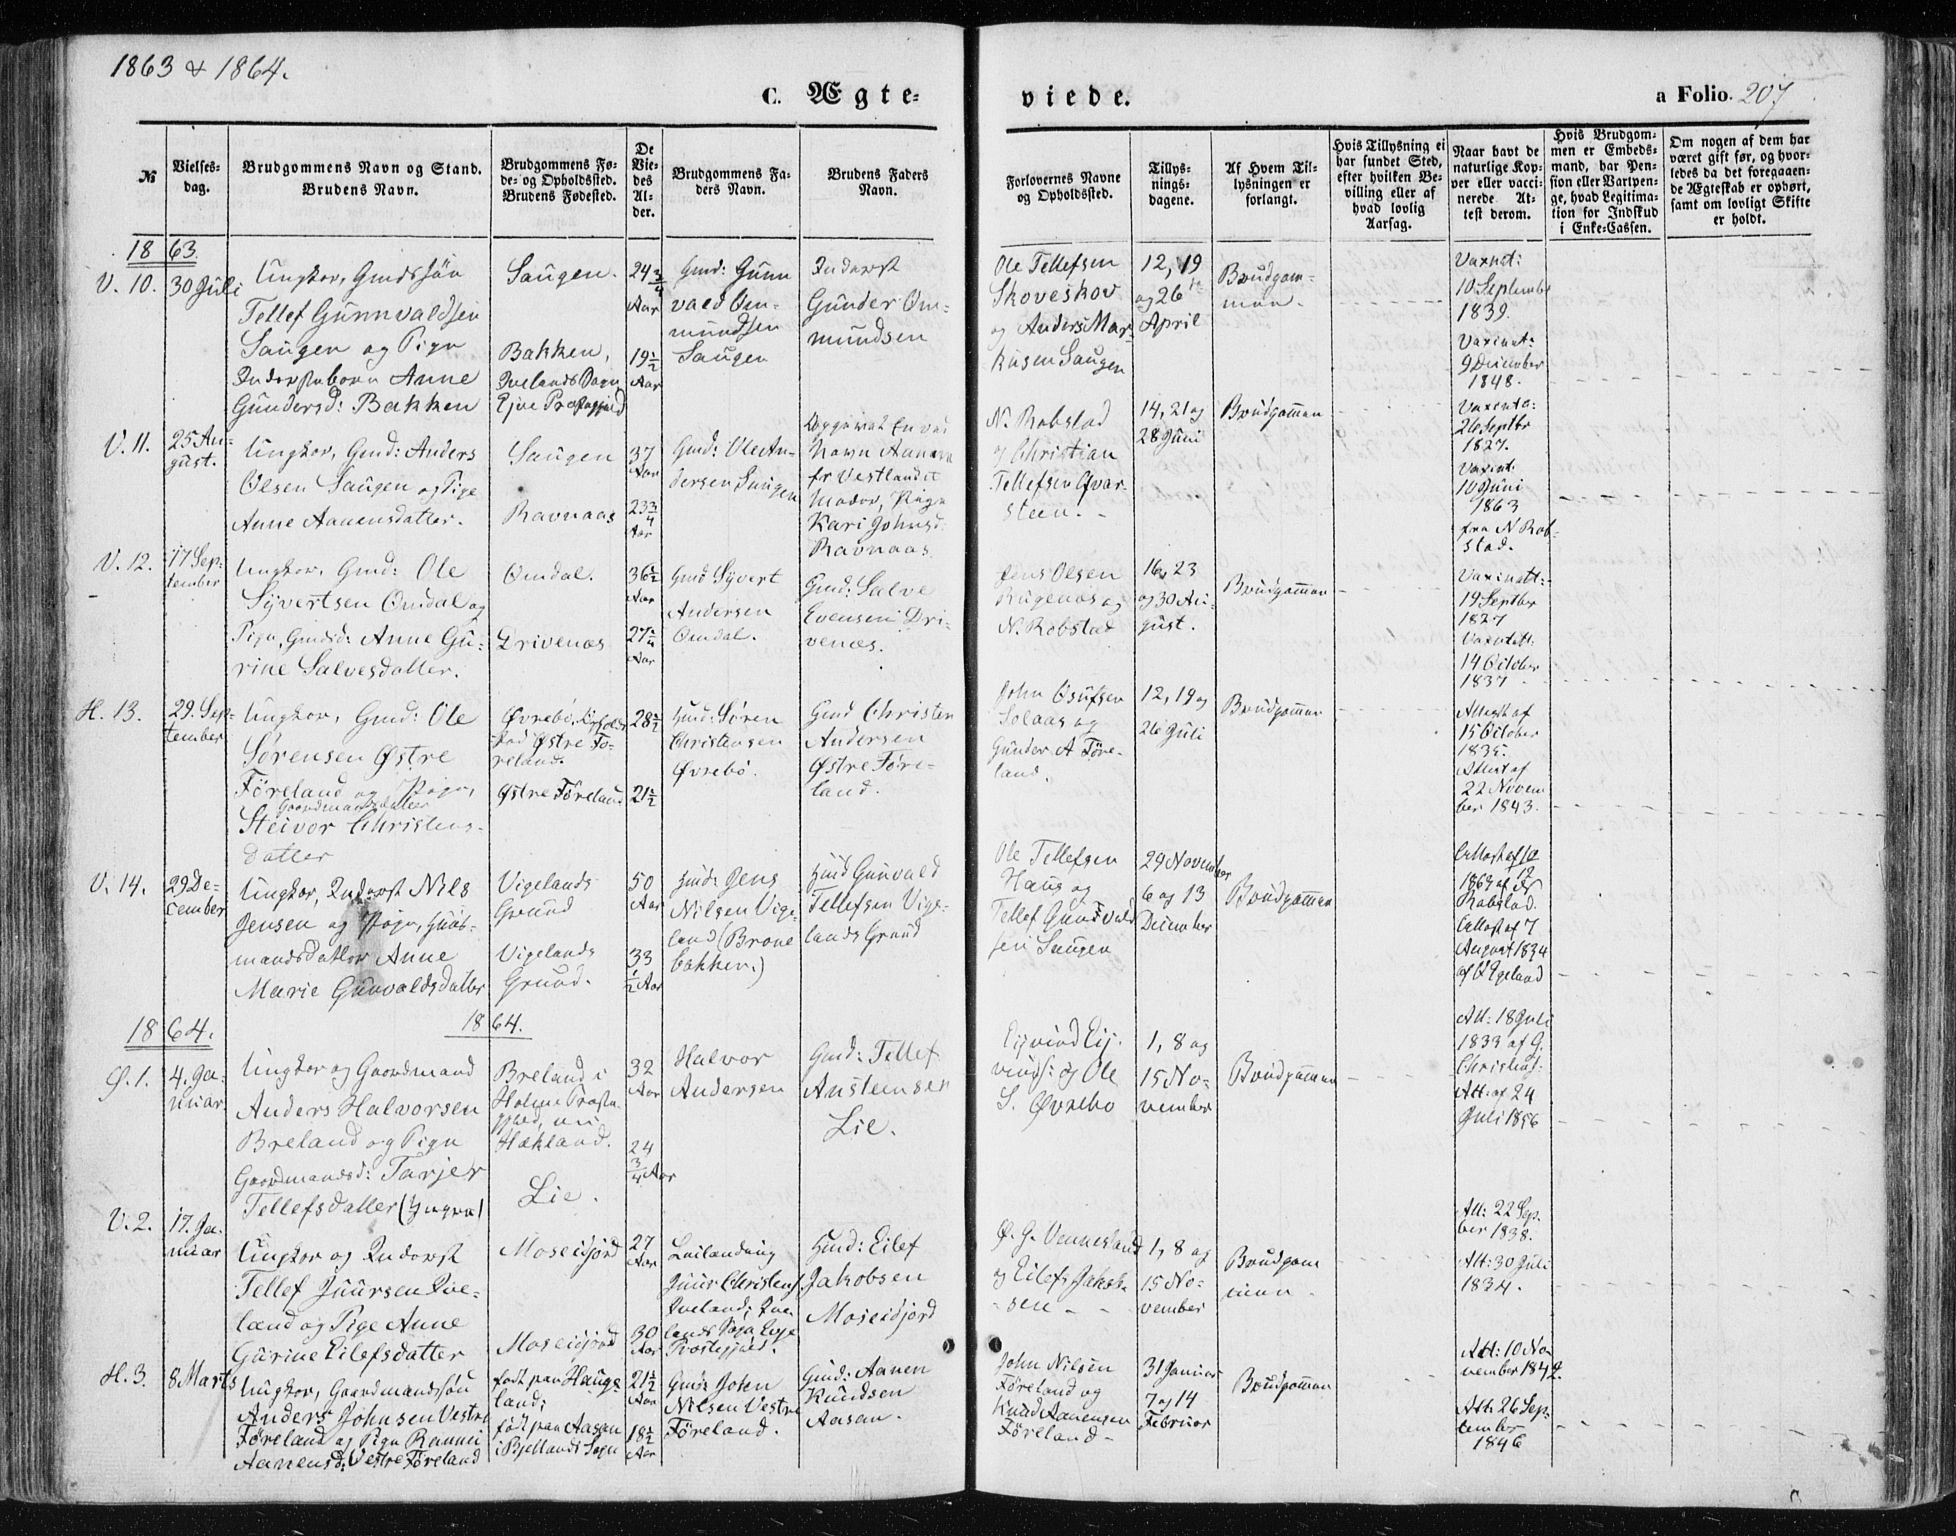 1863 & 1864.
C. Ægte-
viede.
a Folio. 207
№
Vielses-
dag.
Brudgommens Navn og Stand.
Brudens Navn.
Brudgommens Fø-
de- og Opholdssted.
Brudens Fødested.
De
Vie-
des
Al-
der.
Brudgommens Fa-
ders Navn.
Brudens Faders
Navn.
Forlovernes Navne
og Opholdssted.
Tillys-
nings-
dagene.
Af Hvem Til-
lysningen er
forlangt.
Hvis Tillysning ei
har fundet Sted,
efter hvilken Be-
villing eller af
hvad lovlig
Aarsag.
Naar havt de
naturlige Kop-
per eller vacci-
nerede At-
test derom.
Hvis Brudgom-
men er Embeds-
mand, har Pen-
sion eller Vartpen-
ge, hvad Legitima-
tion for Indskud
i Enke-Cassen.
Om nogen af dem har
været gift før, og hvor-
ledes da det foregaaen-
de Ægteskab er ophørt,
samt om lovligt Skifte
er holdt.
1863.
V. 10.
30 Juli
Ungkar, Gmdssøn
Tellef Gunnvaldsen
Saugen og Pige
Inderstebarn Anne
Gundersd: Bakken
Saugen.
Bakken,
Ivelands Sogn
Evje Præstegjeld
24 3/4
Aar
19 1/2
Aar
Gmd: Gunn
vald Om-
mundsen
Saugen
Inderst
Gunder Om-
mundsen
Ole Tellefsen
Skoveskov
og Anders Mar-
kusen Saugen
12, 19
og 26
April
Brudgom-
men.
Vaxnt:
10 Septembr
1839.
Vaxinat:
9 December
1848.
V. 11.
25 Au-
gust.
Ungkar, Gmd: Anders
Olsen Saugen og Pige
Anne Aanensdatter.
Saugen
Ravnaas
37
Aar
23 3/4
Aar
Gmd: Ole An-
dersen Saugen
Opgivet En ved
Navn Aanen
fr Vestlandet
Moder, Pige
Kari Johnsd.
Ravnaas
N. Robstad
og Christian
Tellefsen Qvar-
steen.
14, 21 og
28 Juni
Brudgommen
Vaxenta:
26 Septbr
1827.
Vaxint:
10 Juni
1863
fra N Rob-
stad.
V. 12.
17 Sep-
tember
Ungkar, Gmd: Ole
Syvertsen Omdal og
Pige, Gmdsd: Anne Gu-
rine Salvesdatter.
Omdal.
Drivenæs
36 1/2
Aar
27 1/4
Aar
Gmd Syvert
Andersen
Omdal.
Gmd: Salve
Evensen Dri-
venæs.
Jens Olsen
Rugenæs og
N. Robstad
16, 23
og 30 Au-
gust.
Brudgommen
Vaxinatt:
19 Septbr
1827
Vaxentatt:
14 October
1837
H. 13.
29. Sep-
tember
Ungkar, Gmd: Ole
Sørensen Østre
Föreland og Pige,
Gaardmandsdatter
Steivor Christens-
datter
Øvrebö, Opholds-
sted Østre Fö-
reland.
Østre Föreland
28 1/2
21 1/2
Gmd: Søren
Christensen
Øvrebö.
Gmd Christen
Andersen
Østre Före-
land.
John Osufsen
Solaas og
Gunder A Före-
land.
12, 19 og
26 Juli
Brudgommen
Attest af
15 October
1835.
Attest af
22 Novem
ber 1843.
V. 14.
29 De-
cember
Ungkar, Inderst Nils
Jensen og Pige, Huus-
mandsdatter Anne
Marie Gunvaldsdatter
Vigelands
Grund
Vigelands
Grund.
50
Aar
33
1/2 Aar
Hmd: Jens
Nilsen Vige-
land (Brone
bakken.)
Hmd Gunvald
Tellefsen Vige-
lands Grund
Ole Tellefsen
Haus og
Tellef Gundvald
sen Saugen
29 November
6 og 13
December
Brudgommen
Attest af 10/12
1863 af N
Robstad.
Attest af 7
August 1834
af O Egeland
1864.
1864.
Ø. 1.
4. Ja-
nuar
Ungkar og Gaardmand
Anders Halvorsen
Breland og Pige
Gaardmandsd: Tarjer
Tellefsdatter
Breland i
Holme Præste-
gjeld, nu
Hækland.
Lie.
32
Aar
24
3/4 Aar
Halvor
Andersen
Gmd: Tellef
Austeensen
Lie.
Eijvind Eij-
vinds: og Ole
S. Øvrebo
1, 8 og
15 No-
vember
Brudgommen
Att: 18 Juli
1833 af G.
Christens:
Att: af 24
Juli 1856
V. 2.
17. Ja-
nuar
Ungkar og Inderst
Tellef Juursen Ive-
land og Pige Anne
Gurine Eilefsdatter
Moseidjord
Moseidjord
27
Aar
30
Aar
Leilænding
Juur Christens.
Iveland; Ive-
lands Sogn Evje
Præstegjeld.
Hmd: Eilef
Jakobsen
Moseidjord
Ø. G. Vennesland
og Eilef Jakob-
sen
1, 8 og
15 No-
vember
Brudgom
men
Att: 22 Sep.
ber 1838.
Att: 30 Juli
1834.
H. 3.
8 Marts
Ungkar, Gaardmandssön
Anders Johnsen Vestre
Föreland og Pige Ranni
Aanensd: Vestre Föreland
født paa Hauge
land;
født paa Aasan
i Bjellands Sogn
21 1/2
Aar
18 1/2
Aar
Gmd: John
Nilsen Vestre
Föreland.
Gmd: Aanen
Knudsen
Aasan.
John Nilsen
Föreland og
Knud Aanensen
Föreland
31 Januar
7 og 14
Februar
Brudgommen
Att: 10 No
vember 1842.
Att: 26 Sep-
tember
1846